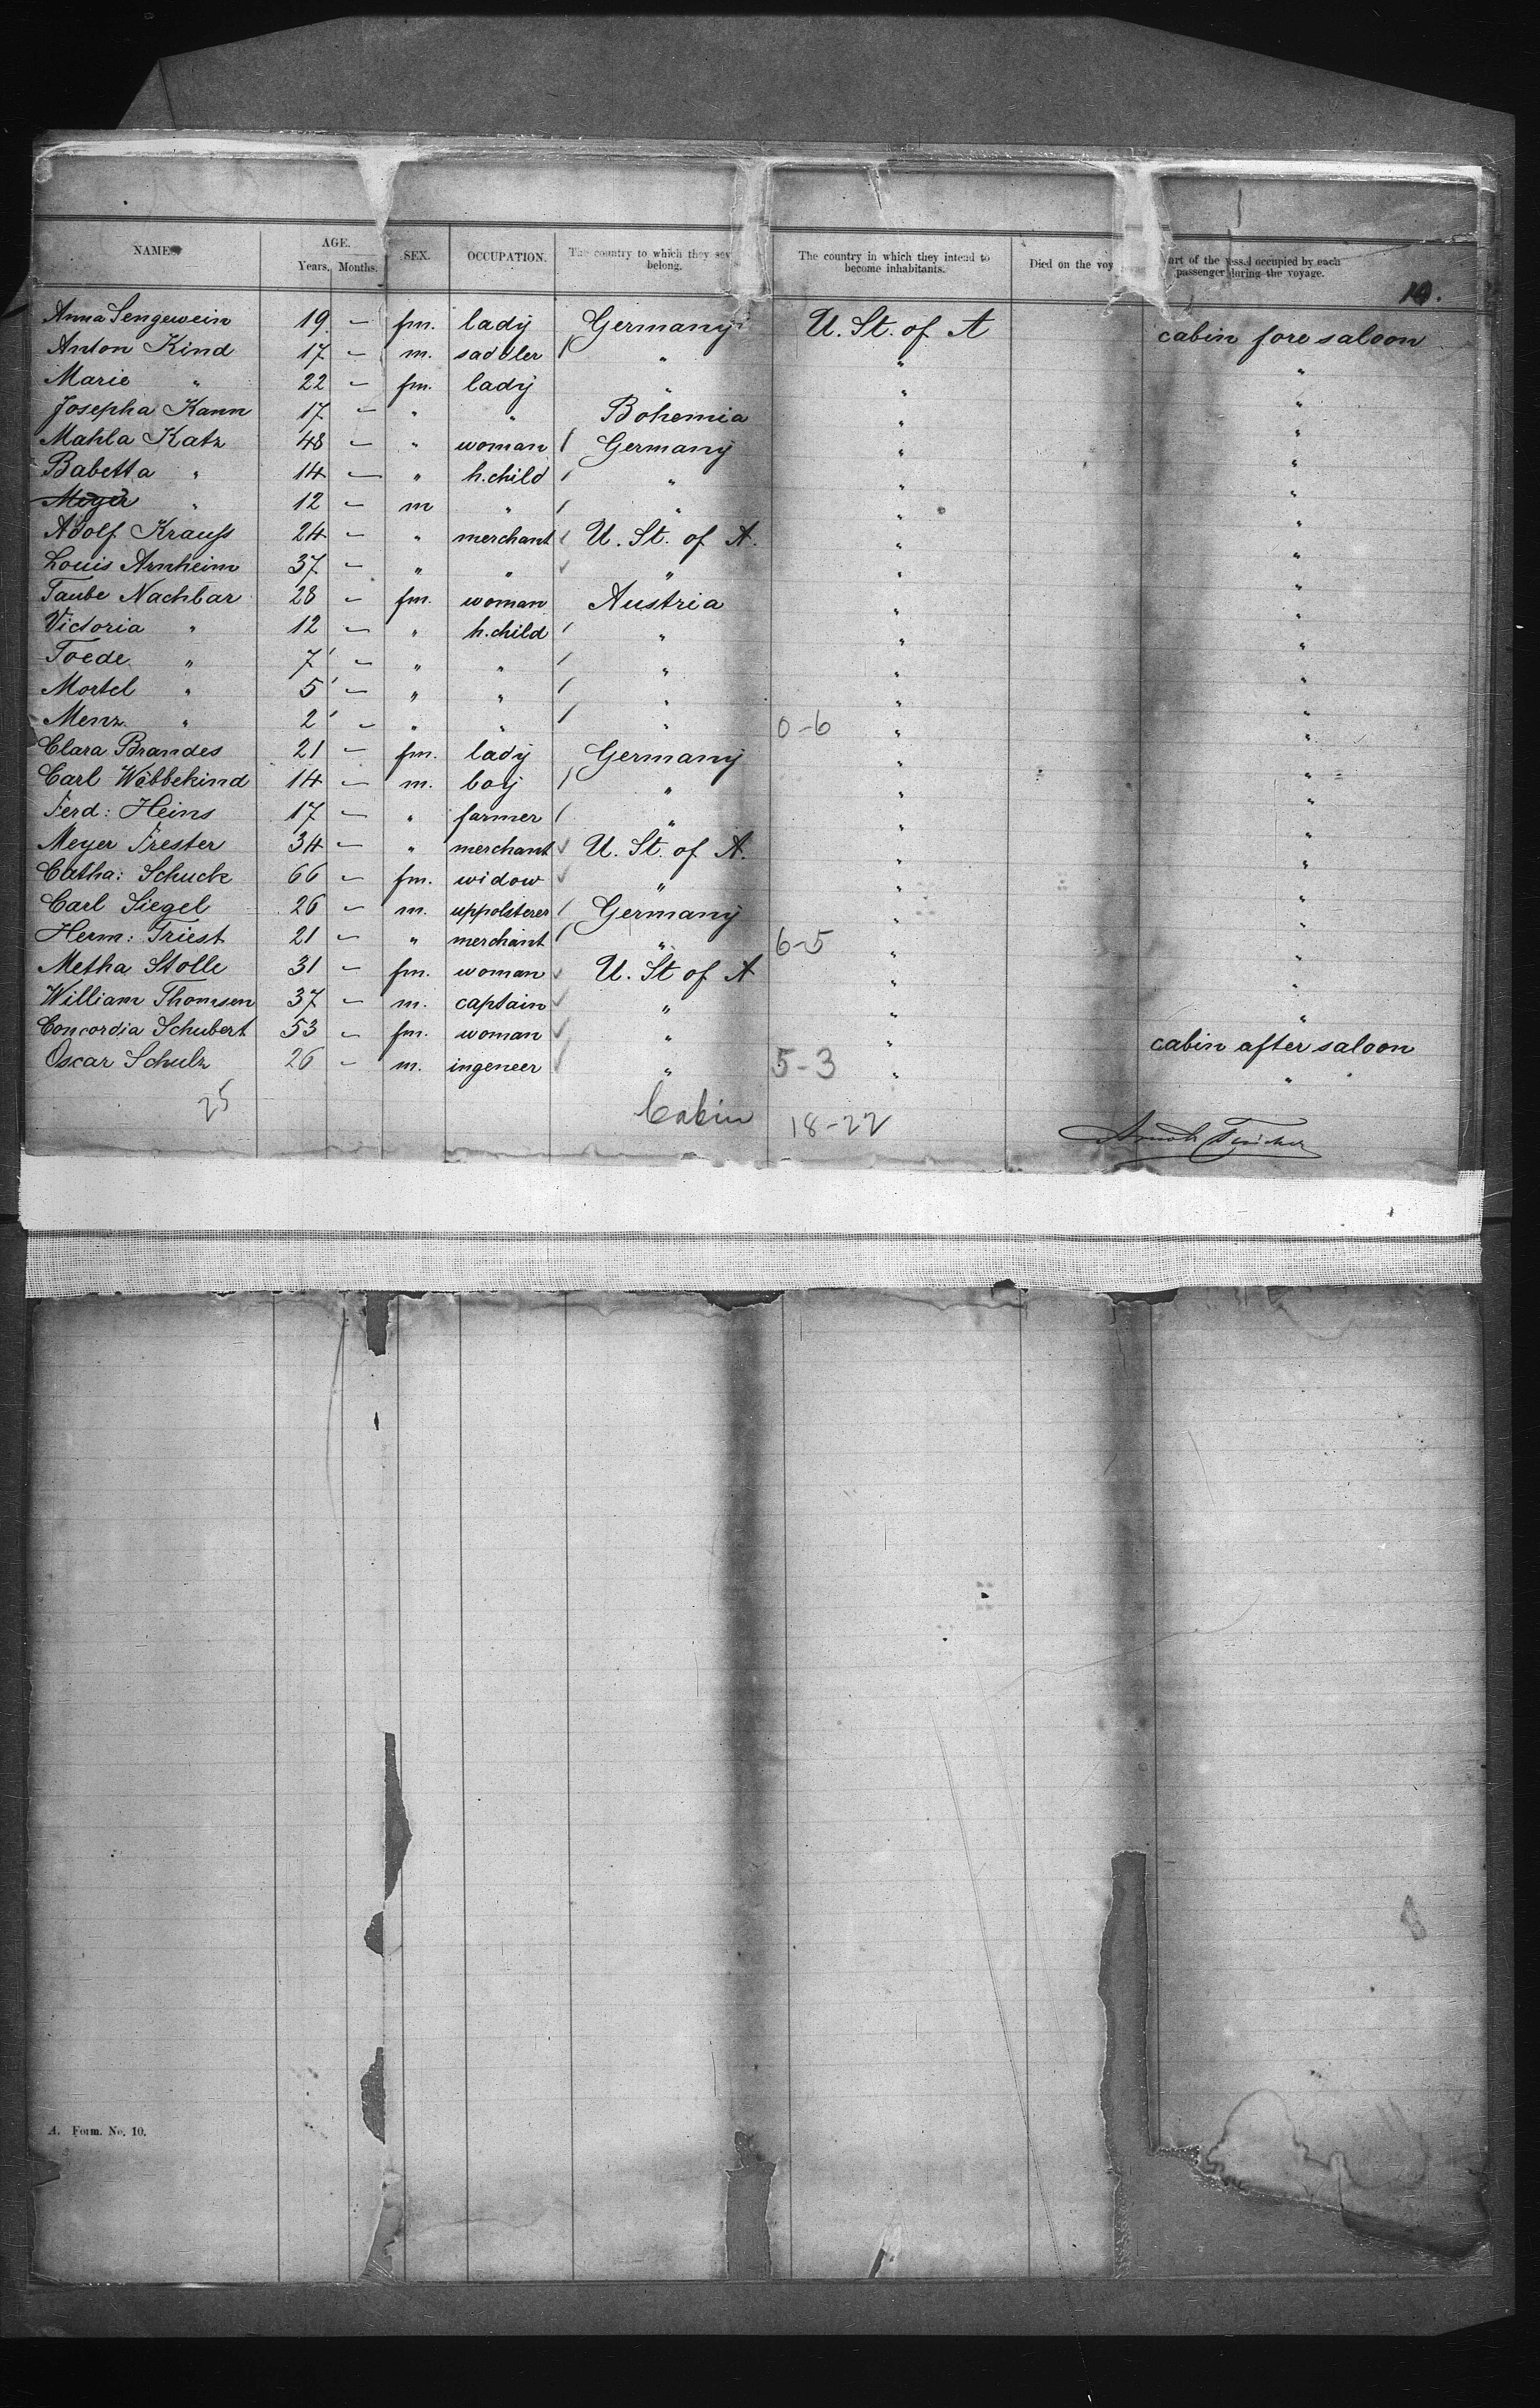 NAME.
AGE.
Years. Months.
SEX.
OCCUPATION.
The country to which they sev
belong.
The country in which they intend to
become inhabitants.
Died on the voy
art of the vessel occupied by each
passenger during the voyage.
10.
Anna Sengewein 19 – fm. lady Germany U. St. of A cabin fore saloon
Anton Kind 17 – m. saddler " " "
Marie " 22 – fm. lady " " "
Josepha Kann 17 – " " Bohemia " "
Mahla Katz 48 – " woman Germany " "
Babetta " 14 – " h. child " " "
Meyer " 12 – m " " " "
Adolf Krauss 24 – " merchant U. St. of A. " "
Louis Arnheim 37 – " " " " "
Taube Nachbar 28 – fm. woman Austria " "
Victoria " 12 – " h. child " " "
Toede " 7 – " " " " "
Mortel " 5 – " " " " "
Menz " 2 – " " " 0-6 " "
Clara Brandes 21 – fm. lady Germany " "
Carl Wöbbekind 14 – m. boy " " "
Ferd: Heins 17 – " farmer " " "
Meyer Frester 34 – " merchant U. St. of A. " "
Catha: Schuck 66 – fm. widow " " "
Carl Siegel 26 – m. uppolsterer Germany " "
Herm: Triest 21 – " merchant " 6-5 " "
Metha Stolle 31 – fm. woman U. St of A " "
William Thomsen 37 – m. captain " " "
Concordia Schubert 53 – fm. woman " " cabin after saloon
Oscar Schulz 26 – m. ingeneer " 5-3 " "
25 Cabin 18-22
A. Form. No. 10.